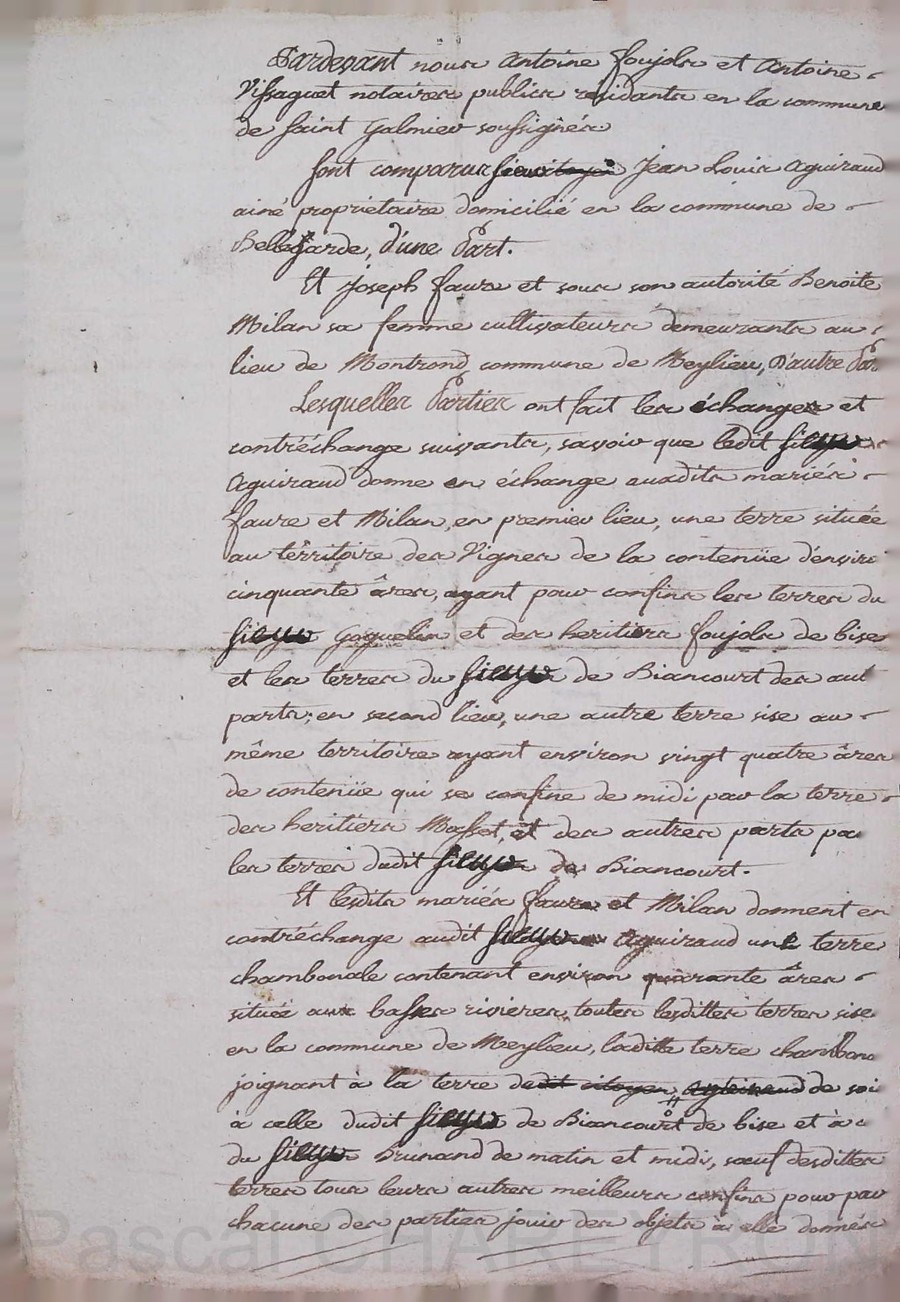 Pardevant nous Antoine Foujols et Antoine
Vissaguet notaires publics residants en la commune
de Saint Galmier soussignés
Sont comparus Jean Louis Aguiraud
ainé proprietaire domicilié en la commune de
Bellegarde, d'une Part.
Et Joseph Faure et sous son autorité Benoite
Milan sa femme cultivateurs demeurants au
lieu de Montrond commune de Meylieu, D'autre Par
Lesquelles Parties ont fait les échanges et
contréchange suivants, savoir que ledit sieur
Aguiraud donne en échange auxdits mariés
Faure et Milan, en premier lieu, une terre située
au térritoire des Vignes de la contenüe d'enviro
cinquante âres, ayant pour confins les terres du
sieur Goguelin et des heritiers Foujols de bise
et les terres du sieur de Biancourt des aut
parts; en second lieu, une autre terre sise au
même territoire ayant environ vingt quatre âres
de contenüe qui se confine de midi par la terre
des heritiers Masset, et des autres parts pa
les terres dudit sieur de Biancourt.
Et lesdits mariés Faure et Milan donnent en
contréchange audit sieur Aguiraud une terre
chambonale contenant environ quarante âres
située aux basses rivieres, toutes lesdittes terres sise
en la commune de Meylieu, laditte terre chambona
joignant à la terre dedit citoyen de soi
à celle dudit sieur de Biancourt de bise et à
du sieur Brunand de matin et midi, sauf desdittes
terres tous leurs autres meilleurs confins pour par
chacune des parties jouir des objets à elle donnés
Pascal CHAREYRON